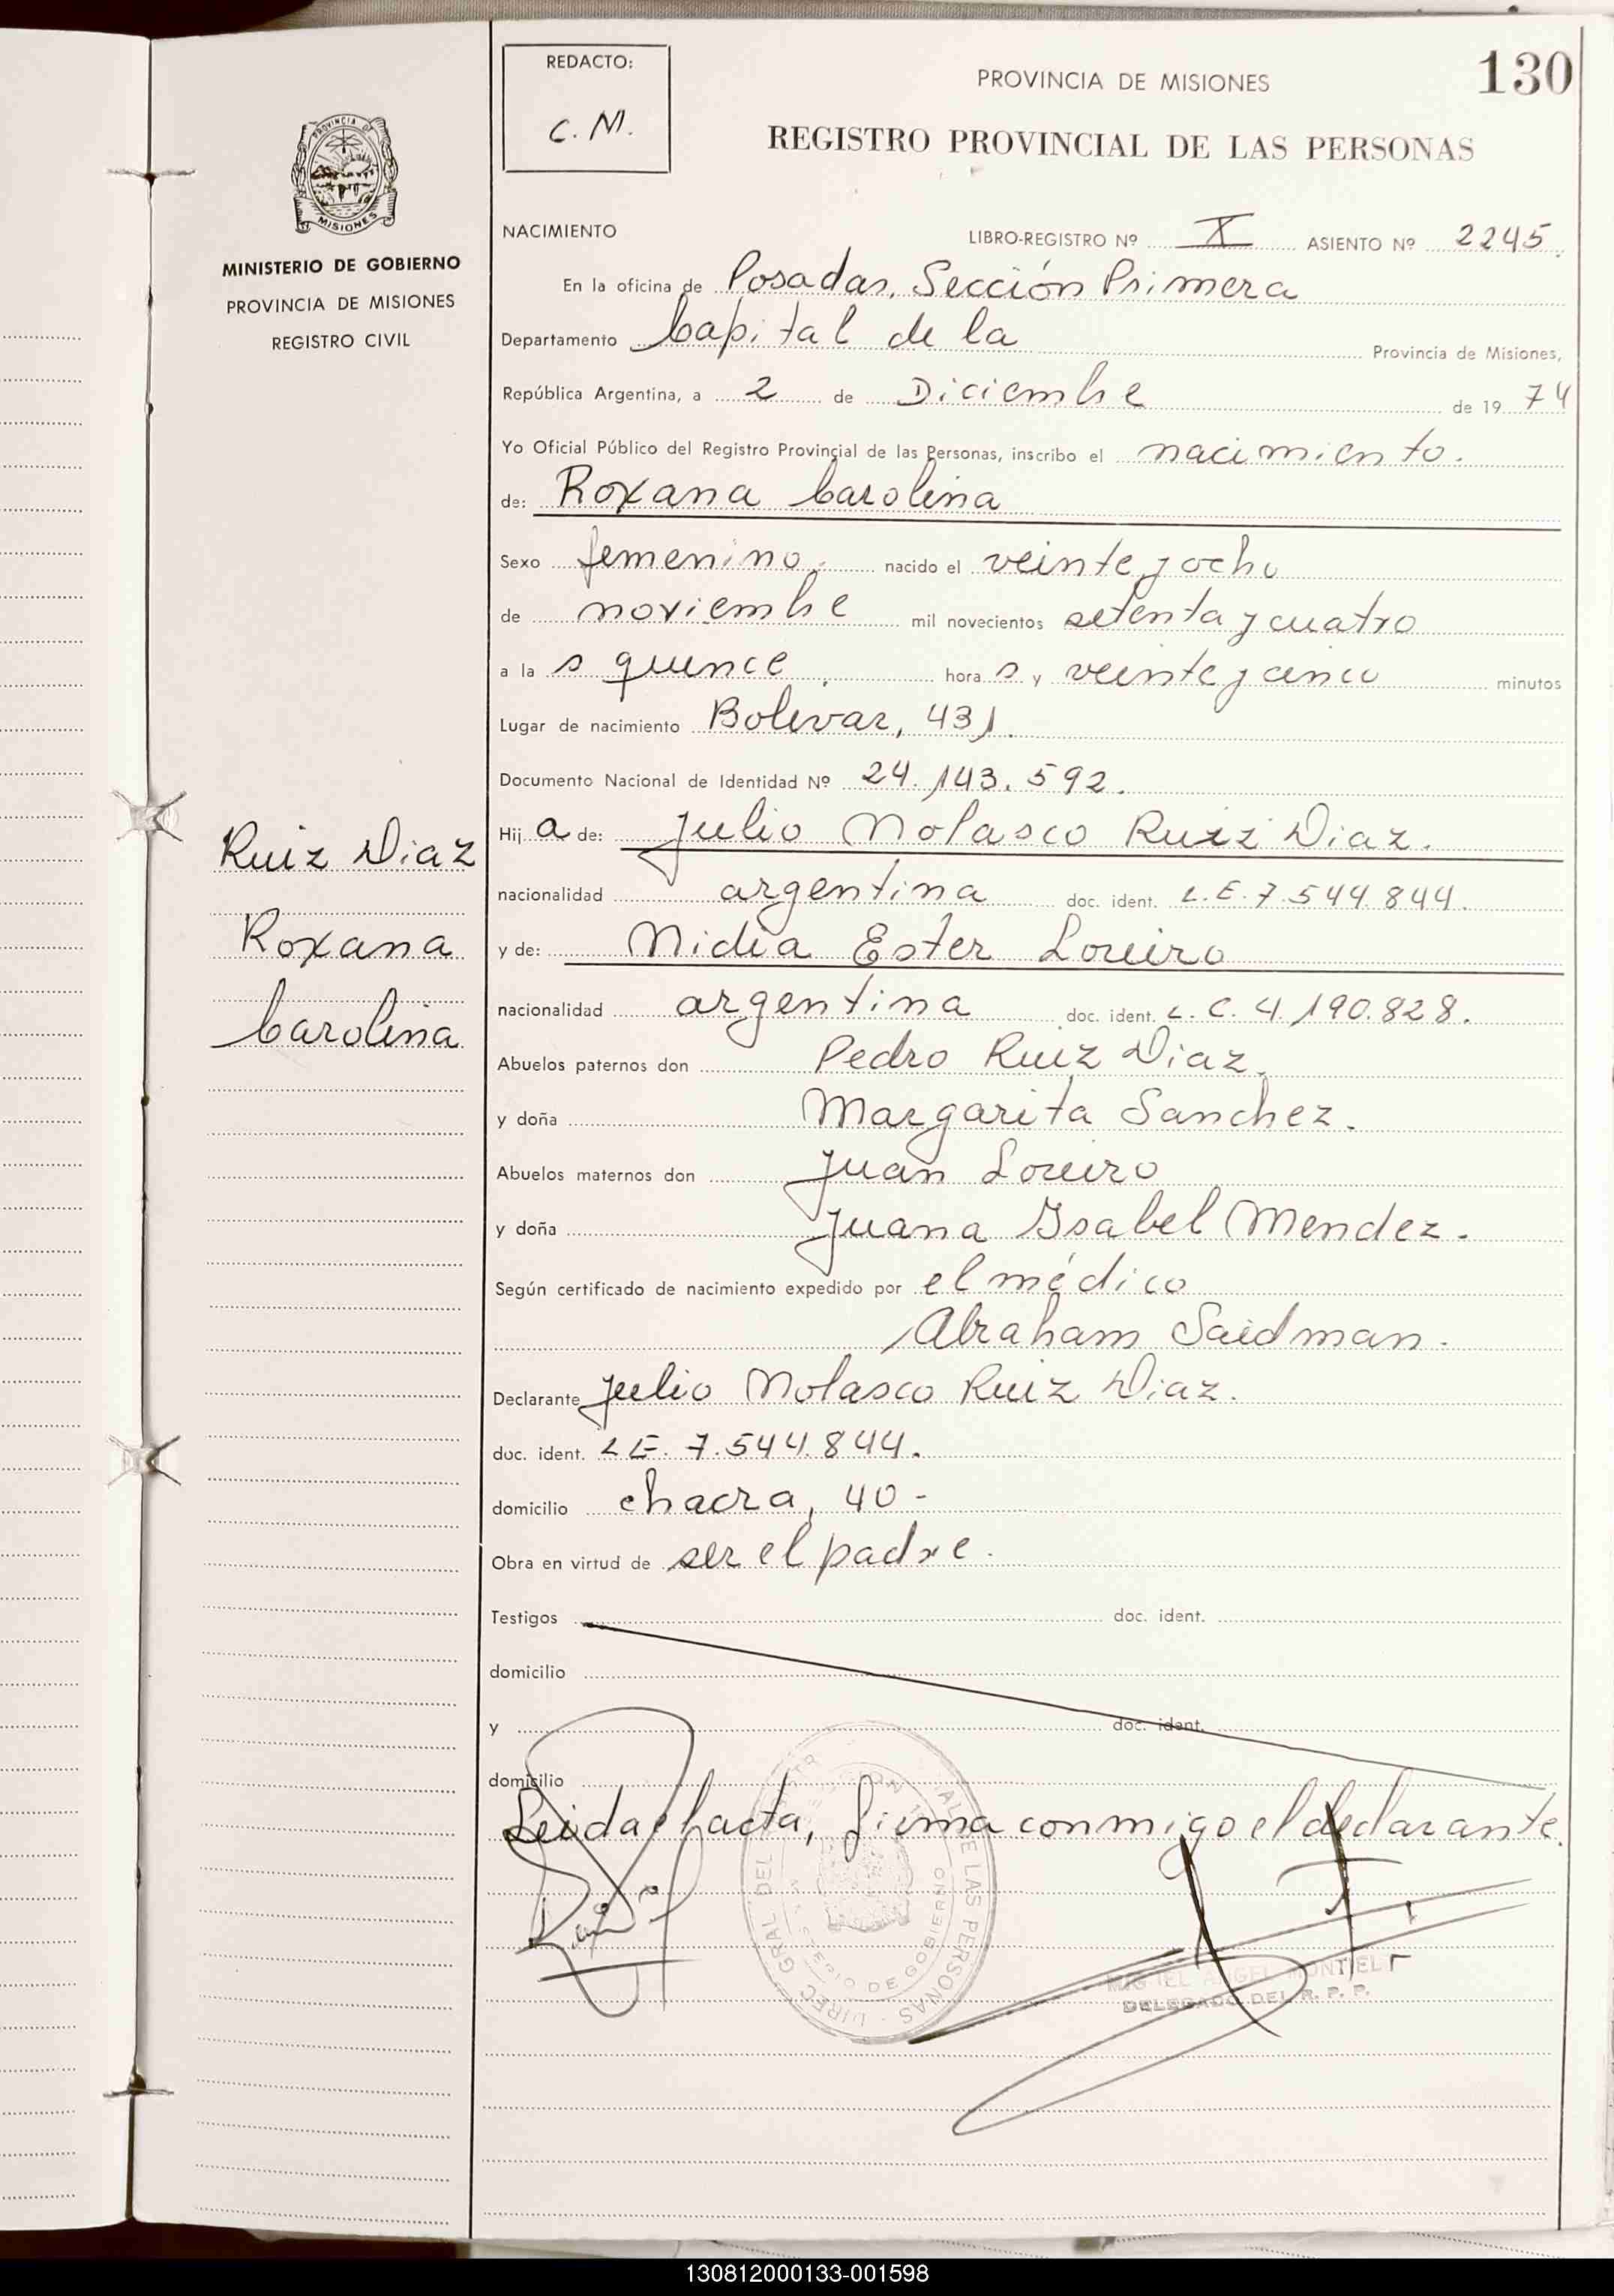 REDACTO:
C. M.
130
PROVINCIA DE MISIONES
REGISTRO PROVINCIAL DE LAS PERSONAS
PROVINCIA DE
MISIONES
MINISTERIO DE GOBIERNO
PROVINCIA DE MISIONES
REGISTRO CIVIL
Ruiz Diaz
Roxana
Carolina
NACIMIENTO
LIBRO-REGISTRO Nº X ASIENTO Nº 2245
En la oficina de Posadas, Sección Primera
Departamento Capital de la Provincia de Misiones,
República Argentina, a 2 de Diciembre de 19 74
Yo Oficial Público del Registro Provincial de las Personas, inscribo el nacimiento.
de: Roxana Carolina
Sexo femenino. nacido el veinte y ocho
de noviembre mil novecientos setenta y cuatro
a la s quince hora s y veinte y cinco minutos
Lugar de nacimiento Bolivar, 431.
Documento Nacional de Identidad Nº 24.143.592.
Hij a de: Julio Nolasco Ruiz Diaz.
nacionalidad argentina doc. ident. L.E. 7.544.844.
y de: Nidia Ester Loureiro
nacionalidad argentina doc. ident. L. C. 4.190.828.
Abuelos paternos don Pedro Ruiz Diaz.
y doña Margarita Sanchez.
Abuelos maternos don Juan Loureiro
y doña Juana Ysabel Mendez.
Según certificado de nacimiento expedido por el médico
Abraham Saidman.
Declarante Julio Nolasco Ruiz Diaz.
doc. ident. L E. 7.544.844.
domicilio chacra, 40 -
Obra en virtud de ser el padre.
Testigos doc. ident.
domicilio
y doc. ident.
domicilio
Leida el acta, firma conmigo el declarante.
DE LAS PERSONAS
DIREC GRAL DEL
DE GOBIERNO
MIGUEL ANGEL MONTIEL
DELEGADO DEL R. P. P.
130812000133-001598